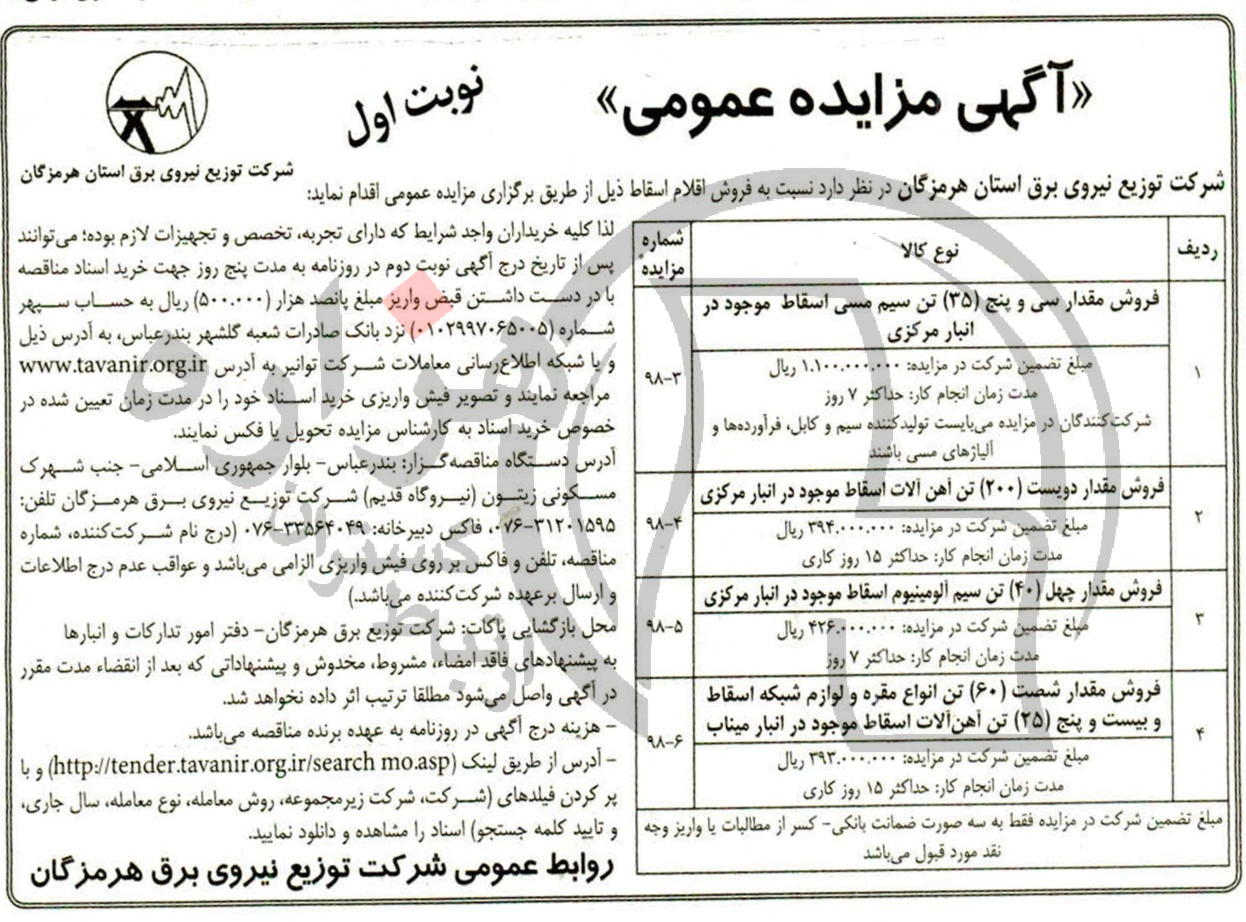 «آگهی مزایده عمومی»
نوبت اول
شرکت توزیع نیروی برق استان هرمزگان
شرکت توزیع نیروی برق استان هرمزگان در نظر دارد نسبت به فروش اقلام اسقاط ذیل از طریق برگزاری مزایده عمومی اقدام نماید:
ردیف
نوع کالا
شماره
مزایده
۱
فروش مقدار سی و پنج (۳۵) تن سیم مسی اسقاط موجود در
انبار مرکزی
مبلغ تضمین شرکت در مزایده: ۱.۱۰۰.۰۰۰.۰۰۰ ریال
مدت زمان انجام کار: حداکثر ۷ روز
شرکت‌کنندگان در مزایده می‌بایست تولیدکننده سیم و کابل، فرآورده‌ها و
آلیاژهای مسی باشند
۹۸-۳
۲
فروش مقدار دویست (۲۰۰) تن آهن آلات اسقاط موجود در انبار مرکزی
مبلغ تضمین شرکت در مزایده: ۳۹۴.۰۰۰.۰۰۰ ریال
مدت زمان انجام کار: حداکثر ۱۵ روز کاری
۹۸-۴
۳
فروش مقدار چهل (۴۰) تن سیم آلومینیوم اسقاط موجود در انبار مرکزی
مبلغ تضمین شرکت در مزایده: ۴۲۶.۰۰۰.۰۰۰ ریال
مدت زمان انجام کار: حداکثر ۷ روز
۹۸-۵
۴
فروش مقدار شصت (۶۰) تن انواع مقره و لوازم شبکه اسقاط
و بیست و پنج (۲۵) تن آهن‌آلات اسقاط موجود در انبار میناب
مبلغ تضمین شرکت در مزایده: ۳۹۳.۰۰۰.۰۰۰ ریال
مدت زمان انجام کار: حداکثر ۱۵ روز کاری
۹۸-۶
مبلغ تضمین شرکت در مزایده فقط به سه صورت ضمانت بانکی- کسر از مطالبات یا واریز وجه
نقد مورد قبول می‌باشد
لذا کلیه خریداران واجد شرایط که دارای تجربه، تخصص و تجهیزات لازم بوده؛ می‌توانند
پس از تاریخ درج آگهی نوبت دوم در روزنامه به مدت پنج روز جهت خرید اسناد مناقصه
با در دست داشتن قبض واریز مبلغ پانصد هزار (۵۰۰.۰۰۰) ریال به حساب سپهر
شماره (۰۱۰۲۹۹۷۰۶۵۰۰۵) نزد بانک صادرات شعبه گلشهر بندرعباس، به آدرس ذیل
و یا شبکه اطلاع‌رسانی معاملات شرکت توانیر به آدرس www.tavanir.org.ir
مراجعه نمایند و تصویر فیش واریزی خرید اسناد خود را در مدت زمان تعیین شده در
خصوص خرید اسناد به کارشناس مزایده تحویل یا فکس نمایند.
آدرس دستگاه مناقصه‌گزار: بندرعباس- بلوار جمهوری اسلامی- جنب شهرک
مسکونی زیتون (نیروگاه قدیم) شرکت توزیع نیروی برق هرمزگان تلفن:
۰۷۶-۳۱۲۰۱۵۹۵، فاکس دبیرخانه: ۰۷۶-۳۳۵۶۴۰۴۹ (درج نام شرکت‌کننده، شماره
مناقصه، تلفن و فاکس بر روی فیش واریزی الزامی می‌باشد و عواقب عدم درج اطلاعات
و ارسال برعهده شرکت‌کننده می‌باشد.)
محل بازگشایی پاکات: شرکت توزیع برق هرمزگان- دفتر امور تدارکات و انبارها
به پیشنهادهای فاقد امضاء، مشروط، مخدوش و پیشنهاداتی که بعد از انقضاء مدت مقرر
در آگهی واصل می‌شود مطلقا ترتیب اثر داده نخواهد شد.
- هزینه درج آگهی در روزنامه به عهده برنده مناقصه می‌باشد.
- آدرس از طریق لینک (http://tender.tavanir.org.ir/search mo.asp) و با
پر کردن فیلدهای (شرکت، شرکت زیرمجموعه، روش معامله، نوع معامله، سال جاری،
و تایید کلمه جستجو) اسناد را مشاهده و دانلود نمایید.
روابط عمومی شرکت توزیع نیروی برق هرمزگان
هزاره